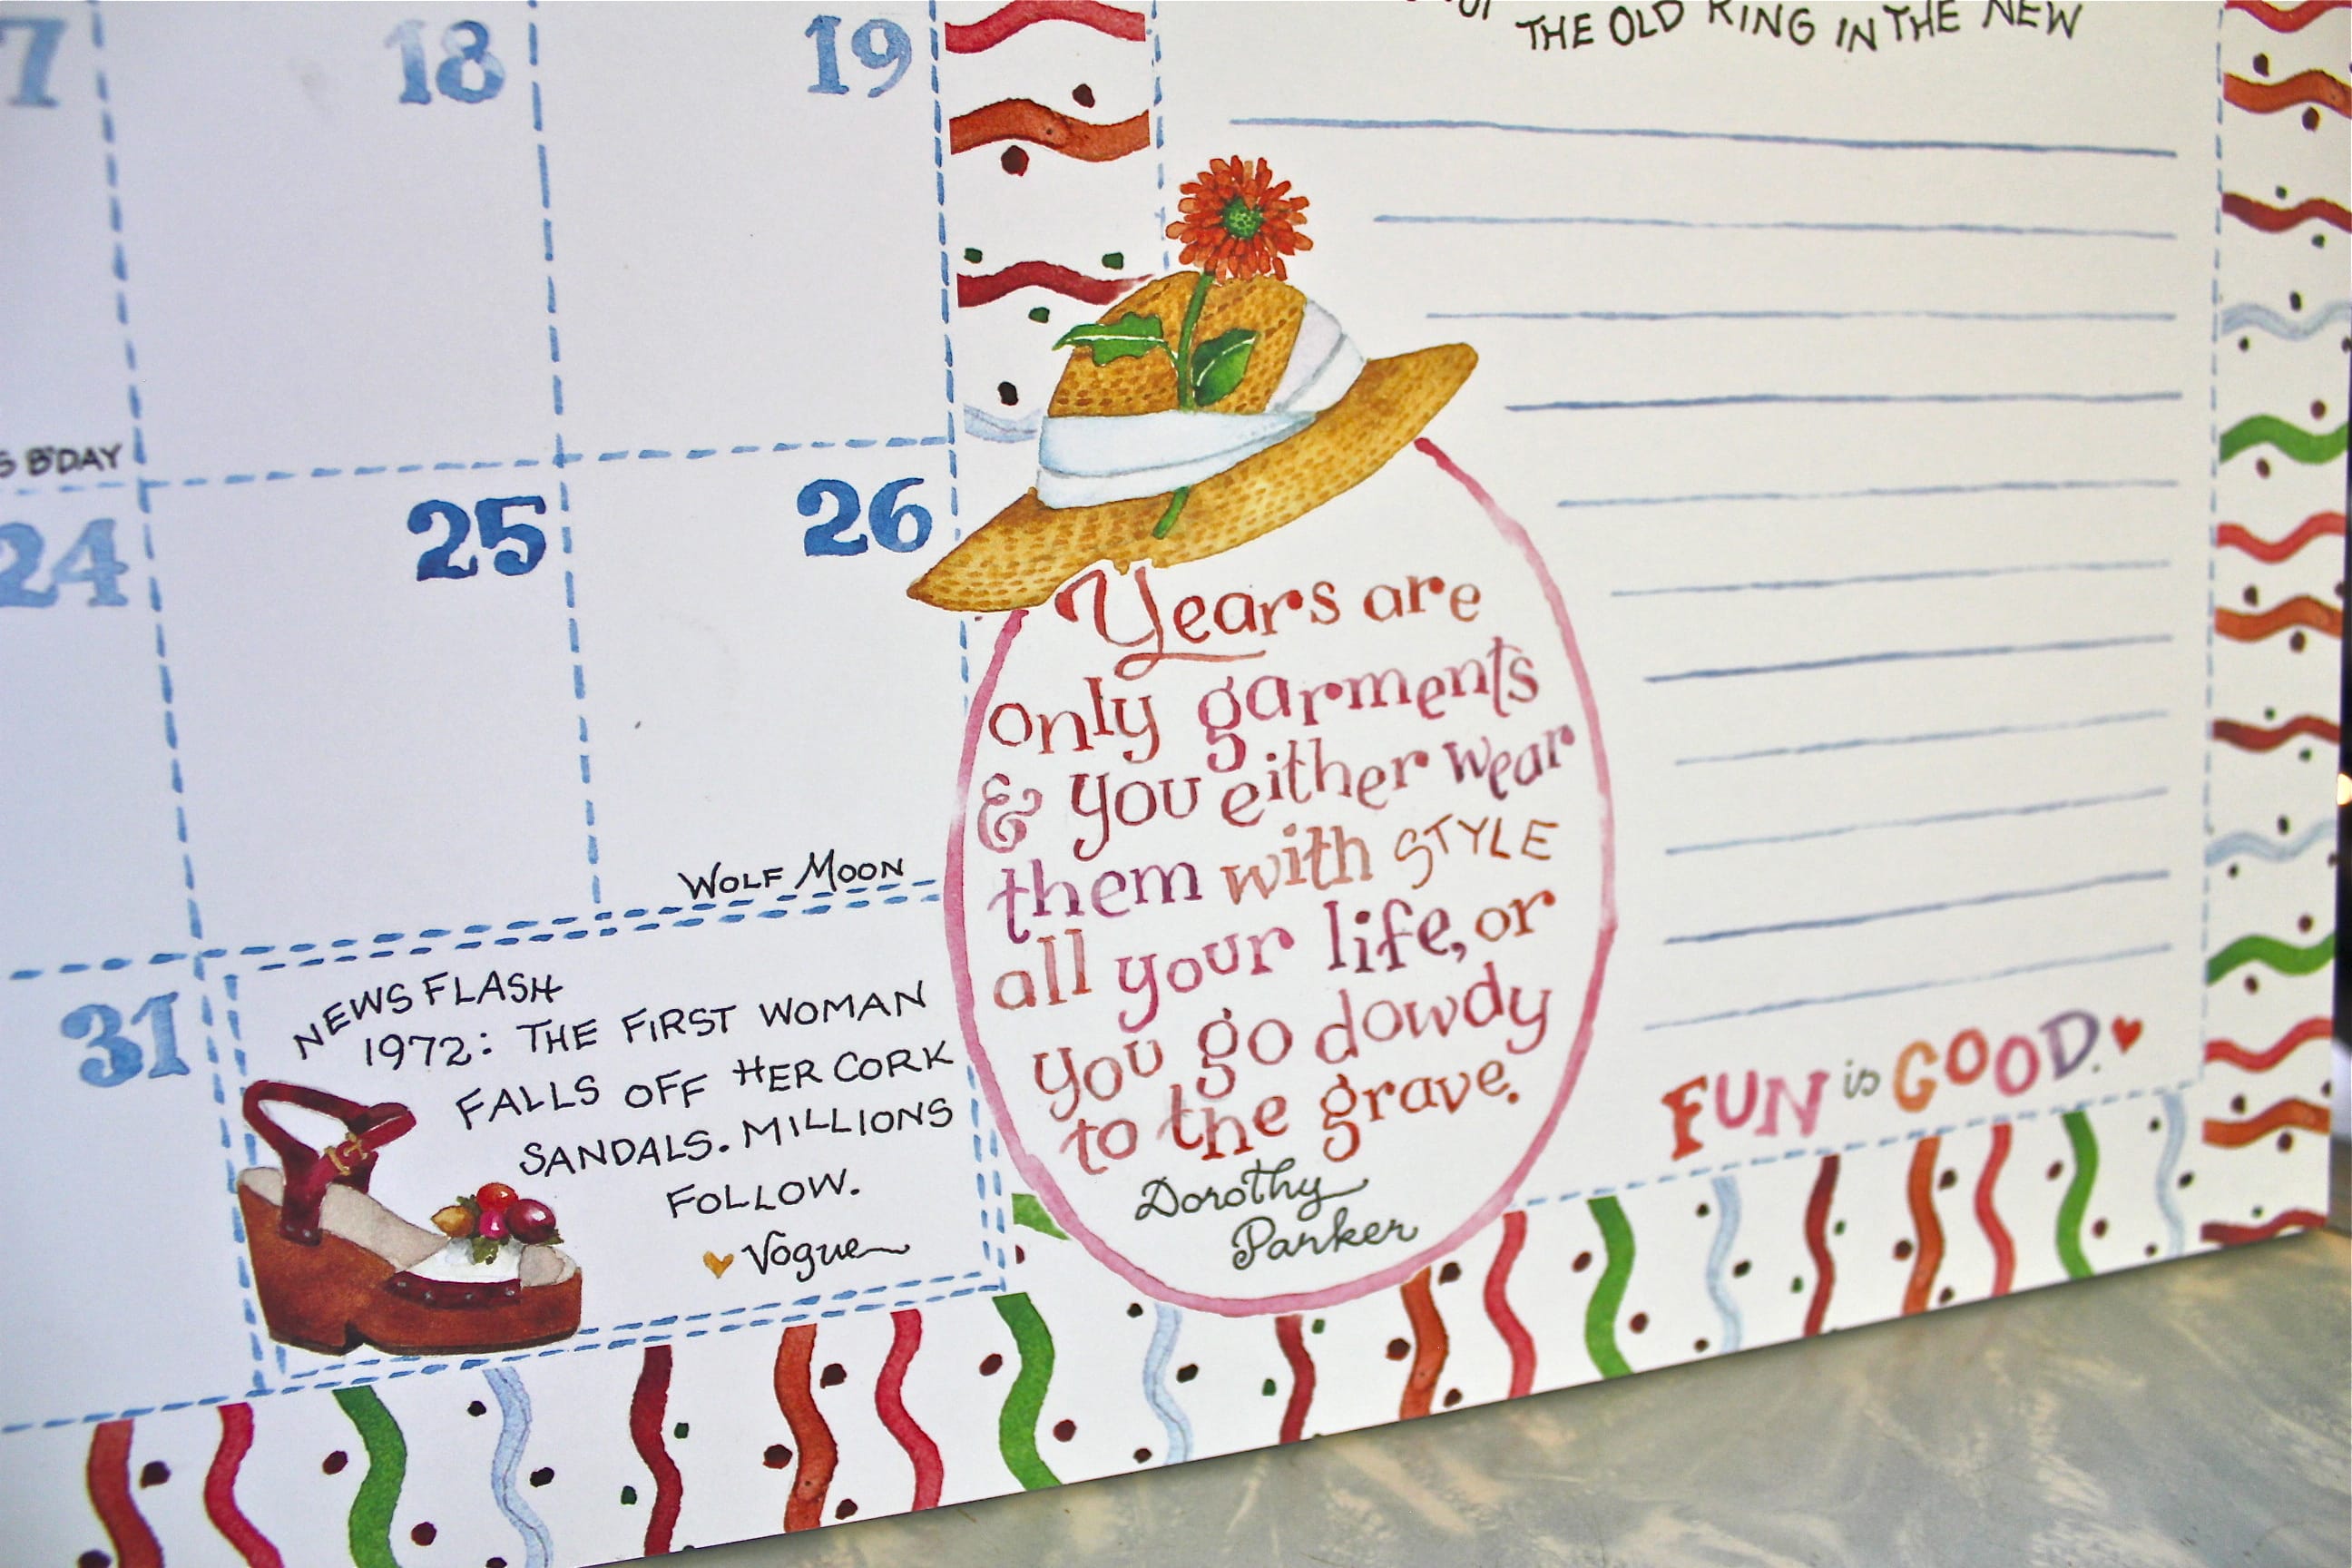 THE OLD RING IN THE NEW
18
19
B'DAY
24
25
26
WOLF MOON
31
NEWS FLASH
1972: THE FIRST WOMAN
FALLS OFF HER CORK
SANDALS. MILLIONS
FOLLOW.
Vogue
Years are
only garments
& you either wear
them with STYLE
all your life, or
you go dowdy
to the grave.
Dorothy
Parker
FUN is GOOD.